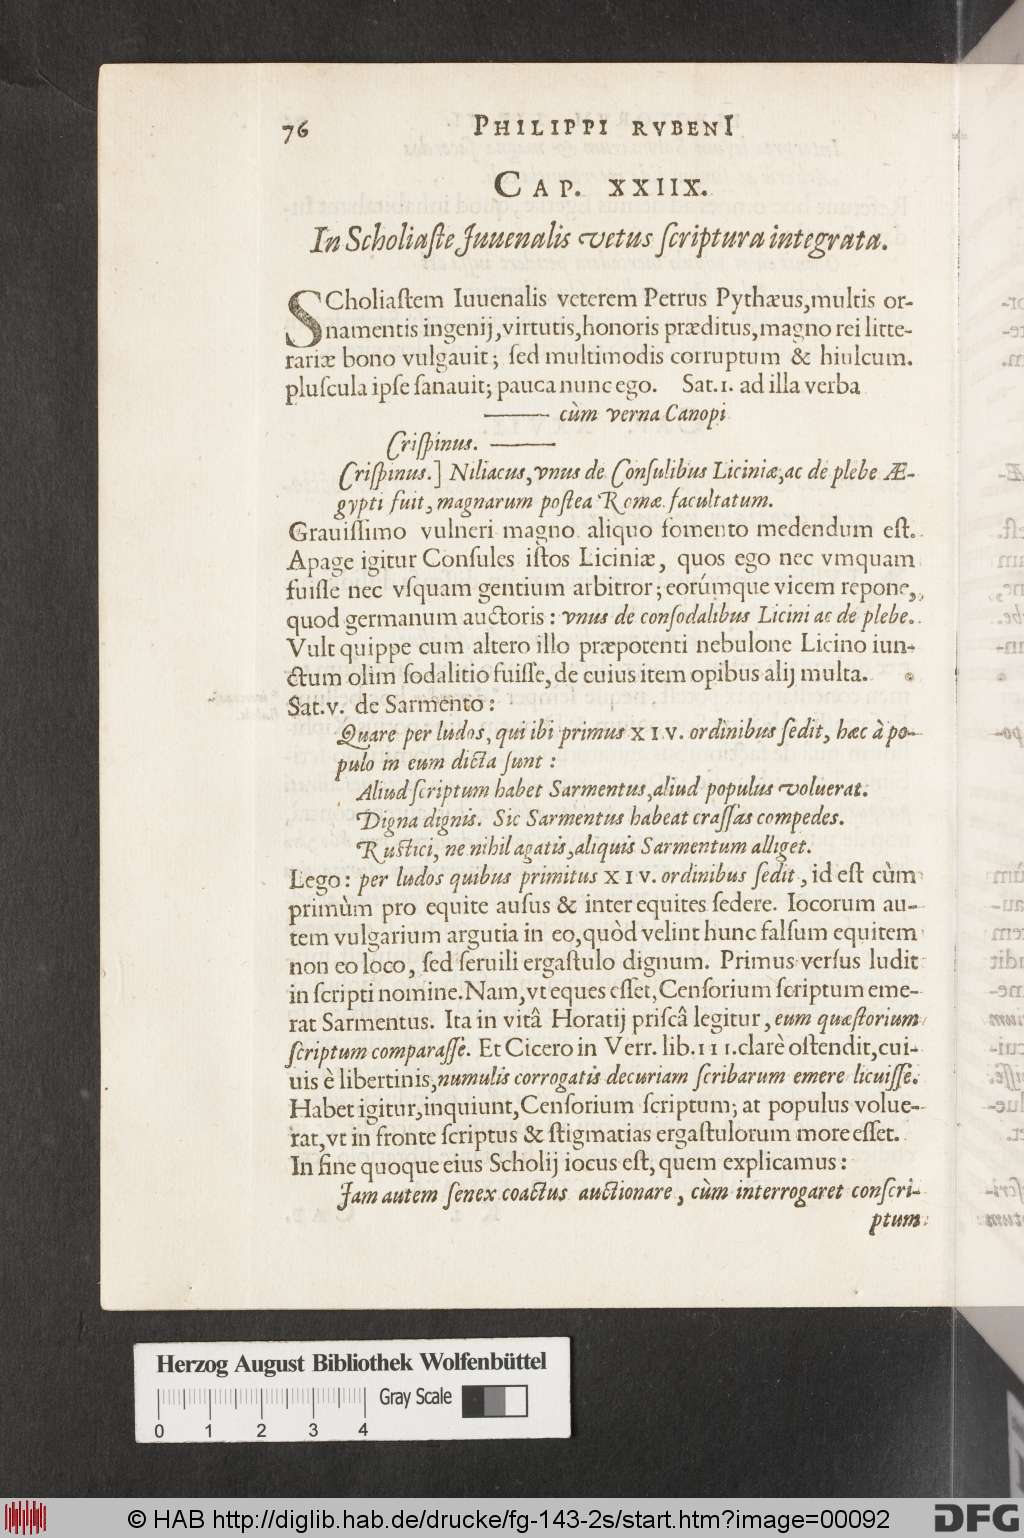 76 PHILIPPI RVBENI
CAP. XXIIX.
In Scholiaste Juuenalis vetus scriptura integrata.
SCholiaſtem Iuuenalis veterem Petrus Pythæus, multis or-
namentis ingenij, virtutis, honoris præditus, magno rei litte-
rariæ bono vulgauit; ſed multimodis corruptum & hiulcum.
pluſcula ipſe ſanauit; pauca nunc ego. Sat. 1. ad illa verba
——— cùm verna Canopi
Criſpinus. ———
Criſpinus.] Niliacus, vnus de Conſulibus Liciniæ, ac de plebe Æ-
gypti fuit, magnarum poſtea Romæ facultatum.
Grauiſſimo vulneri magno aliquo fomento medendum eſt.
Apage igitur Conſules iſtos Liciniæ, quos ego nec vmquam
fuiſſe nec vſquam gentium arbitror; eorúmque vicem repone,
quod germanum auctoris: vnus de conſodalibus Licini ac de plebe.
Vult quippe cum altero illo præpotenti nebulone Licino iun-
ctum olim ſodalitio fuiſſe, de cuius item opibus alij multa.
Sat. v. de Sarmento:
Quare per ludos, qui ibi primus XIV. ordinibus ſedit, hæc à po-
pulo in eum dicta ſunt:
Aliud ſcriptum habet Sarmentus, aliud populus voluerat.
Digna dignis. Sic Sarmentus habeat craſſas compedes.
Ruſtici, ne nihil agatis, aliquis Sarmentum alliget.
Lego: per ludos quibus primitus XIV. ordinibus ſedit, id eſt cùm
primùm pro equite auſus & inter equites ſedere. Iocorum au-
tem vulgarium argutia in eo, quòd velint hunc falſum equitem
non eo loco, ſed ſeruili ergaſtulo dignum. Primus verſus ludit
in ſcripti nomine. Nam, vt eques eſſet, Cenſorium ſcriptum eme-
rat Sarmentus. Ita in vitâ Horatij priſcâ legitur, eum quæſtorium
ſcriptum comparaſſe. Et Cicero in Verr. lib. III. clarè oſtendit, cui-
uis è libertinis, numulis corrogatis decuriam ſcribarum emere licuiſſe.
Habet igitur, inquiunt, Cenſorium ſcriptum; at populus volue-
rat, vt in fronte ſcriptus & ſtigmatias ergaſtulorum more eſſet.
In fine quoque eius Scholij iocus eſt, quem explicamus:
Jam autem ſenex coactus auctionare, cùm interrogaret conſcri-
ptum
Herzog August Bibliothek Wolfenbüttel
Gray Scale
0 1 2 3 4
© HAB http://diglib.hab.de/drucke/fg-143-2s/start.htm?image=00092
DFG